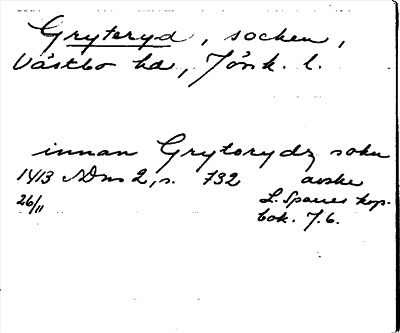 Gryteryd, socken,
Västbo hd, Jönk. l.
innan Grytorydz sokn
1413 SDns 2, s. 732 avskr
26/11 L. Sparres kop.
bok. f. 6.